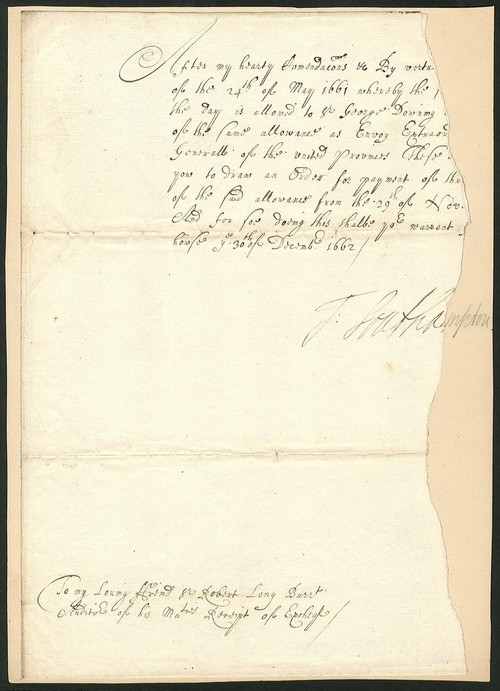 After my hearty Comendacons &c By vertu
of the 24th of May 1661 whereby the
the day is allowed to Sr George Downing
of the same allowance as Envoy Extraor
Generall of the united Provinces These
you to draw an Order for payment of thr
of the said allowance from the 29th of Nov
And for soe doing this shalbe yor warrant
howse ye 30th of Decemb: 1662
T: Southampton
To my Loving Freind Sr Robert Long Barrt
Auditor of his Maties Receipt of Excheqr